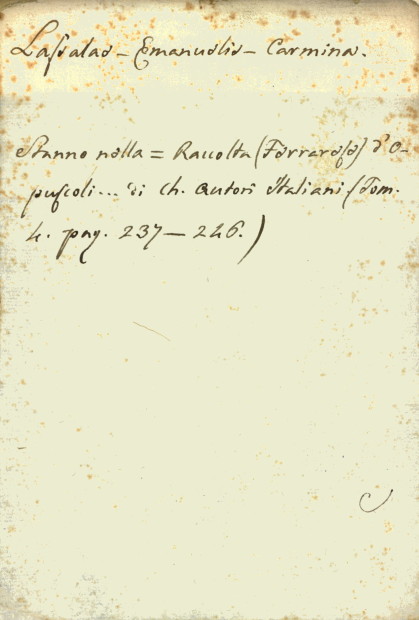 Laſsalae - Emanuelis - Carmina.
Stanno nella = Raccolta (Ferrareſe) d'O-
puſcoli... di ch. autori Italiani (Tom.
4. pag. 237 — 246.)